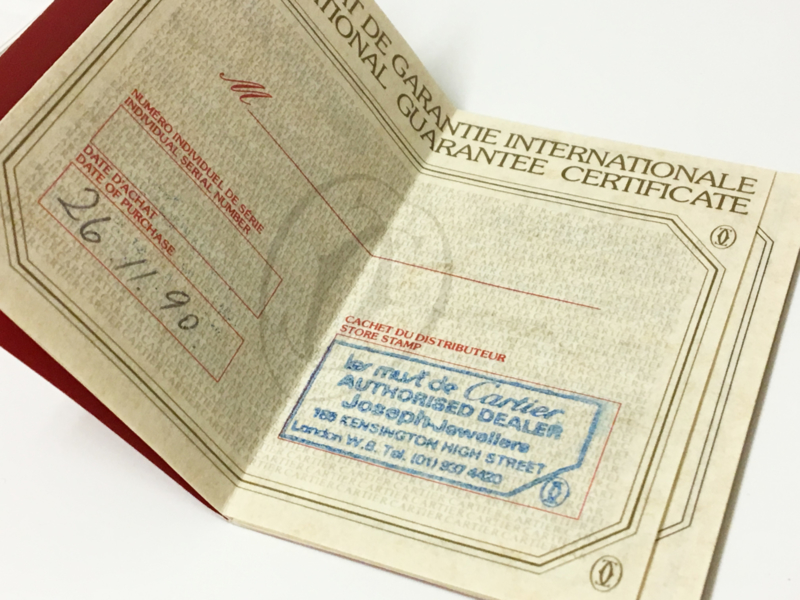 AT DE GARANTIE INTERNATIONALE
NATIONAL GUARANTEE CERTIFICATE
M
NUMÉRO INDIVIDUEL DE SÉRIE
INDIVIDUAL SERIAL NUMBER
DATE D'ACHAT
DATE OF PURCHASE
26.11.90.
CACHET DU DISTRIBUTEUR
STORE STAMP
les must de Cartier
AUTHORISED DEALER
Joseph Jewellers
AUTHORISED